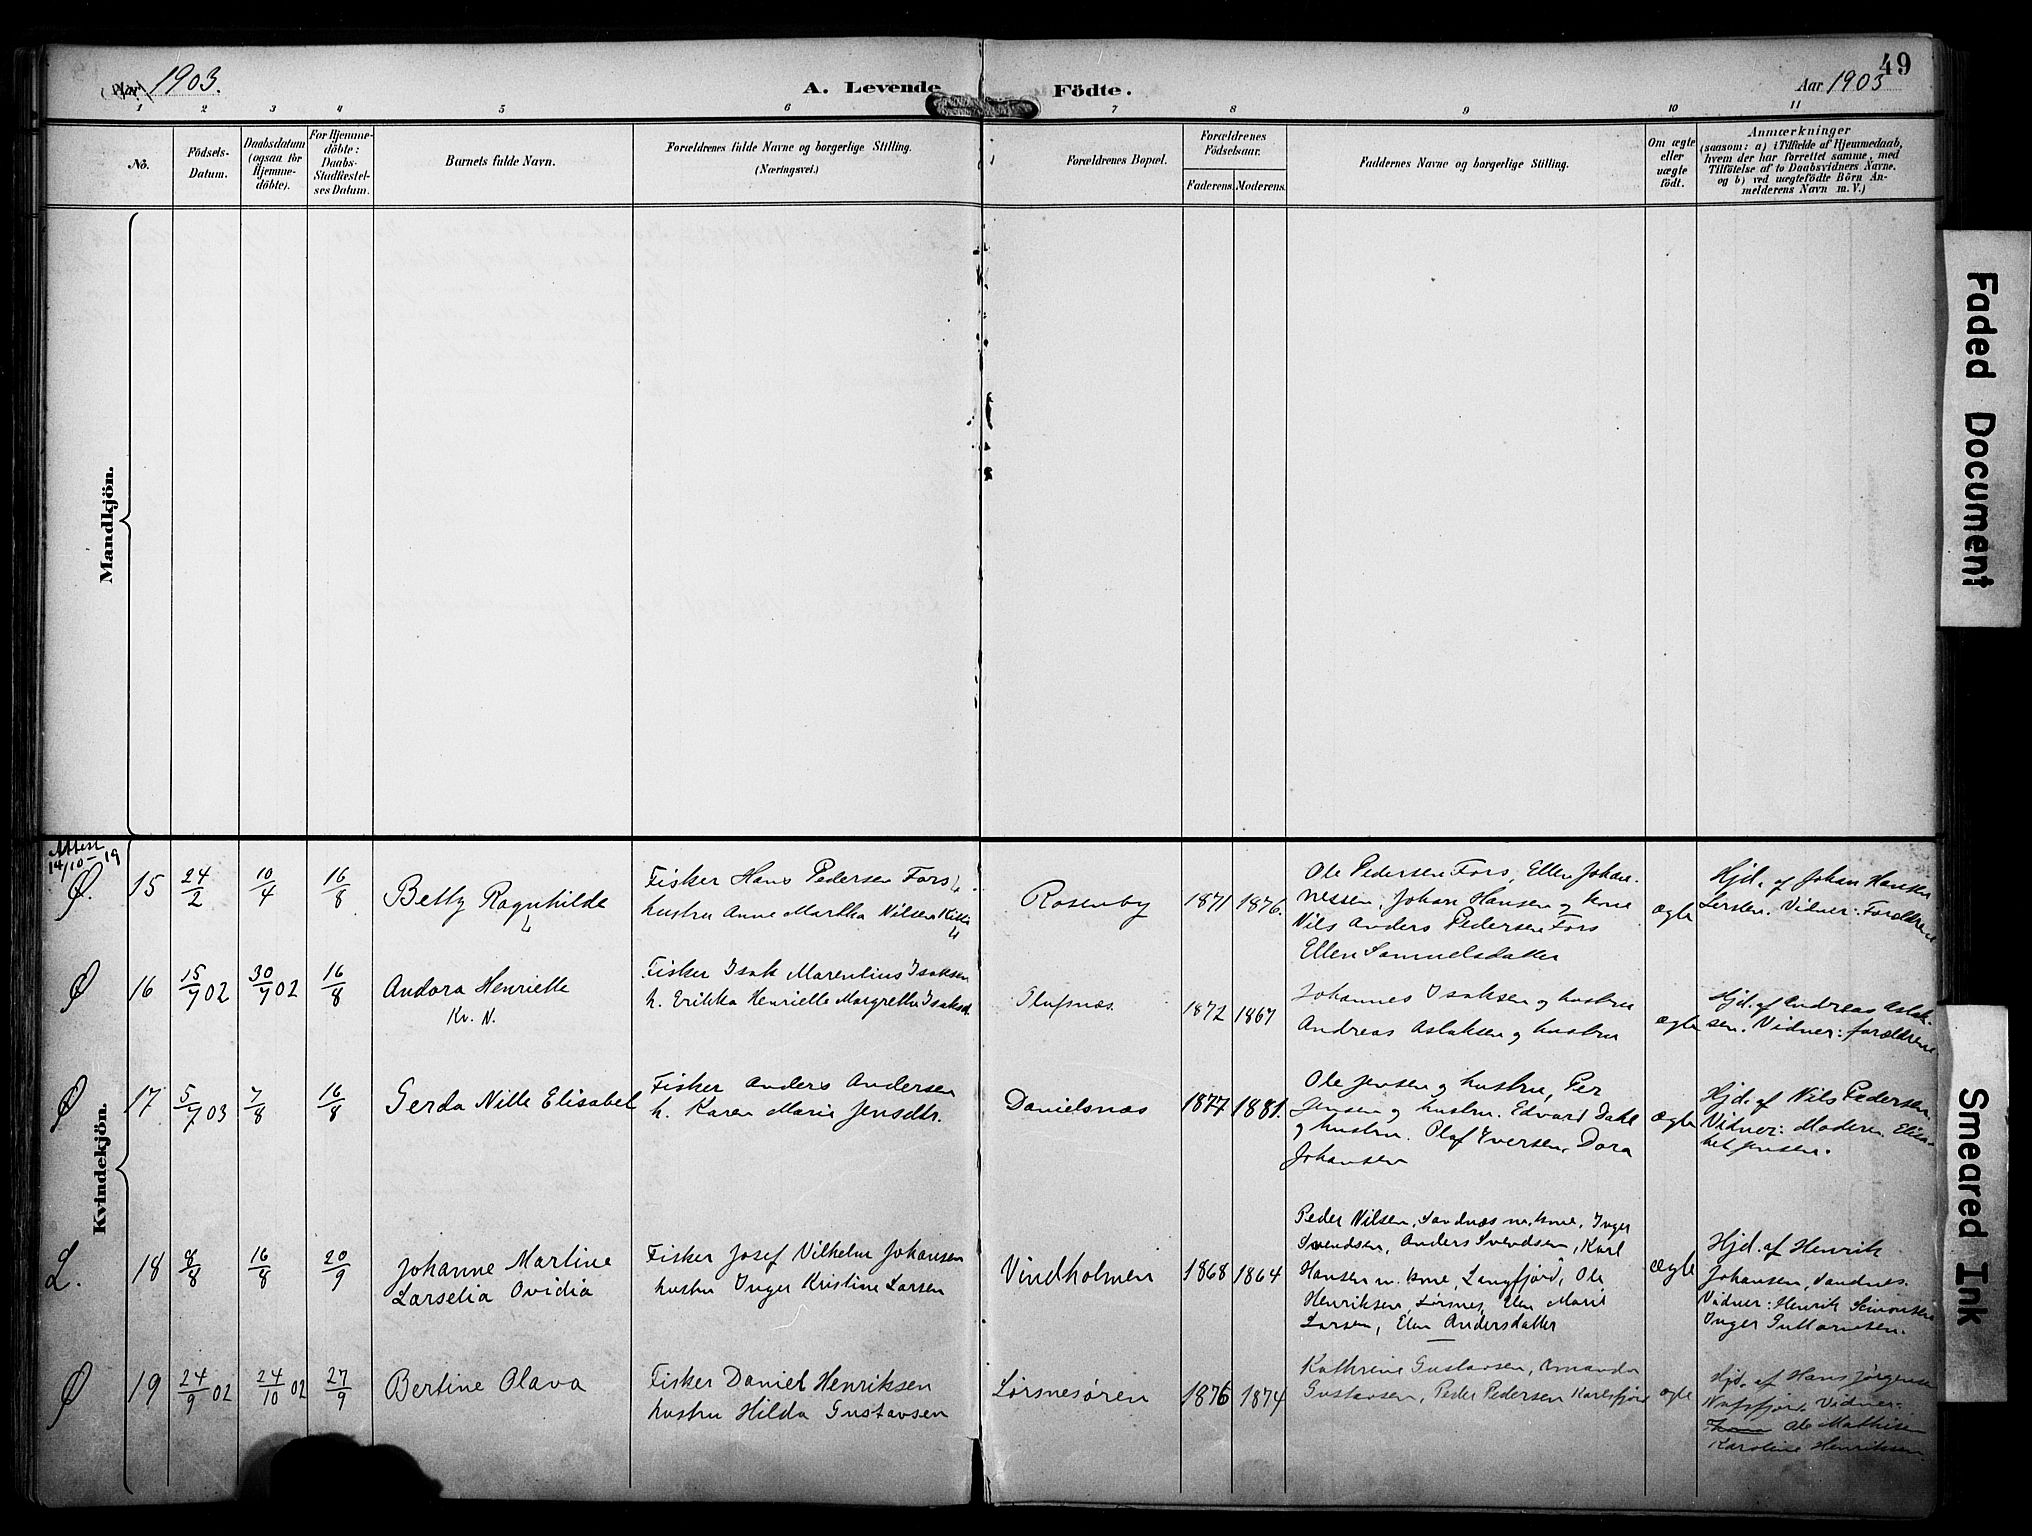 49
Aar 1903.
A. Levende Födte.
Aar 1903
1 2 3 4 5 6 7 8 9 10 11
No.
Födsels-
Datum.
Daabsdatum
(ogsaa for
Hjemme-
döbte).
For Hjemme-
döbte:
Daabs-
Stadfæstel-
ses Datum.
Barnets fulde Navn.
Forældrenes fulde Navne og borgerlige Stilling.
(Næringsvei.)
Forældrenes Bopæl.
Forældrenes
Födselsaar.
Faderens. Moderens.
Faddernes Navne og borgerlige Stilling.
Om ægte
eller
uægte
födt.
Anmærkninger
(saasom: a) i Tilfælde af Hjemmedaab,
hvem der har forrettet samme, med
Tilföielse af to Daabsvidners Navne,
og b) ved uægtefödte Börn An-
melderens Navn m. V.)
Mandkjön.
Kvindekjön.
Attest
14/10-19
Ø. 15
24/2
10/4
16/8
Betty Ragnhilde
Fisker Hans Pedersen Fors
hustru Anne Martha Nilsen
Rosenby
1871 1876.
Ole Pedersen Fors, Ellen Johan-
nessen, Johan Hansen og kone
Nils Anders Pedersen Fors
Ellen Samuelsdatter
ægte
Hjd. af Johan Hansen
Lersten. Vidner: Forældrene
Ø 16
15/7 02
30/7 02
16/8
Andora Henriette
Kv. N.
Fisker Isak Marentius Isaksen
h. Erikka Henriette Margrethe Isaksd.
Olufsnæs.
1872 1867
Johannes Isaksen og hustru
Andreas Aslaksen og hustru
ægte
Hjd. af Andreas Aslak-
sen. Vidner: forældrene
Ø 17
5/7 03
7/8
16/8
Gerda Nille Elisabet
Fisker Anders Andersen
h. Karen Marie Jensdtr.
Danielsnæs
1877 1881.
Ole Jensen og hustru, Per
Jensen og hustru. Edvard Dahl
og hustru. Olaf Iversen, Dora
Johansen
ægte
Hjd. af Nils Pedersen.
Vidner: Moderen Elisa-
bet Jensen.
L. 18
8/8
16/8
20/9
Johanne Martine
Larselia Ovidia
Fisker Josef Vilhelm Johansen
hustru Inger Kristine Larsen
Vindholmen
1868 1864
Peder Nilsen, Sandnæs m. kone, Inger
Svendsen, Anders Svendsen, Karl
Hansen m. kone, Langfjord, Ole
Henriksen, Lørsnes, Elen Marie
Larsen, Elen Andersdatter
ægte
Hjd. af Henrik
Johansen, Sandnes.
Vidner: Henrik Simonsen
Inger Guttormsen.
Ø 19
24/9 02
24/10 02
27/9
Bertine Olava
Fisker Daniel Henriksen
hustru Hilda Gustavsen
Lørsnesøren
1876 1874
Kathrine Gustavsen, Amanda
Gustavsen, Peder Pedersen Karlsfjord
ægte
Hjd. af Hans Jørgensen
Vidner:
Ole Mathisen
Karoline Henriksen
Faded Document
Smeared Ink